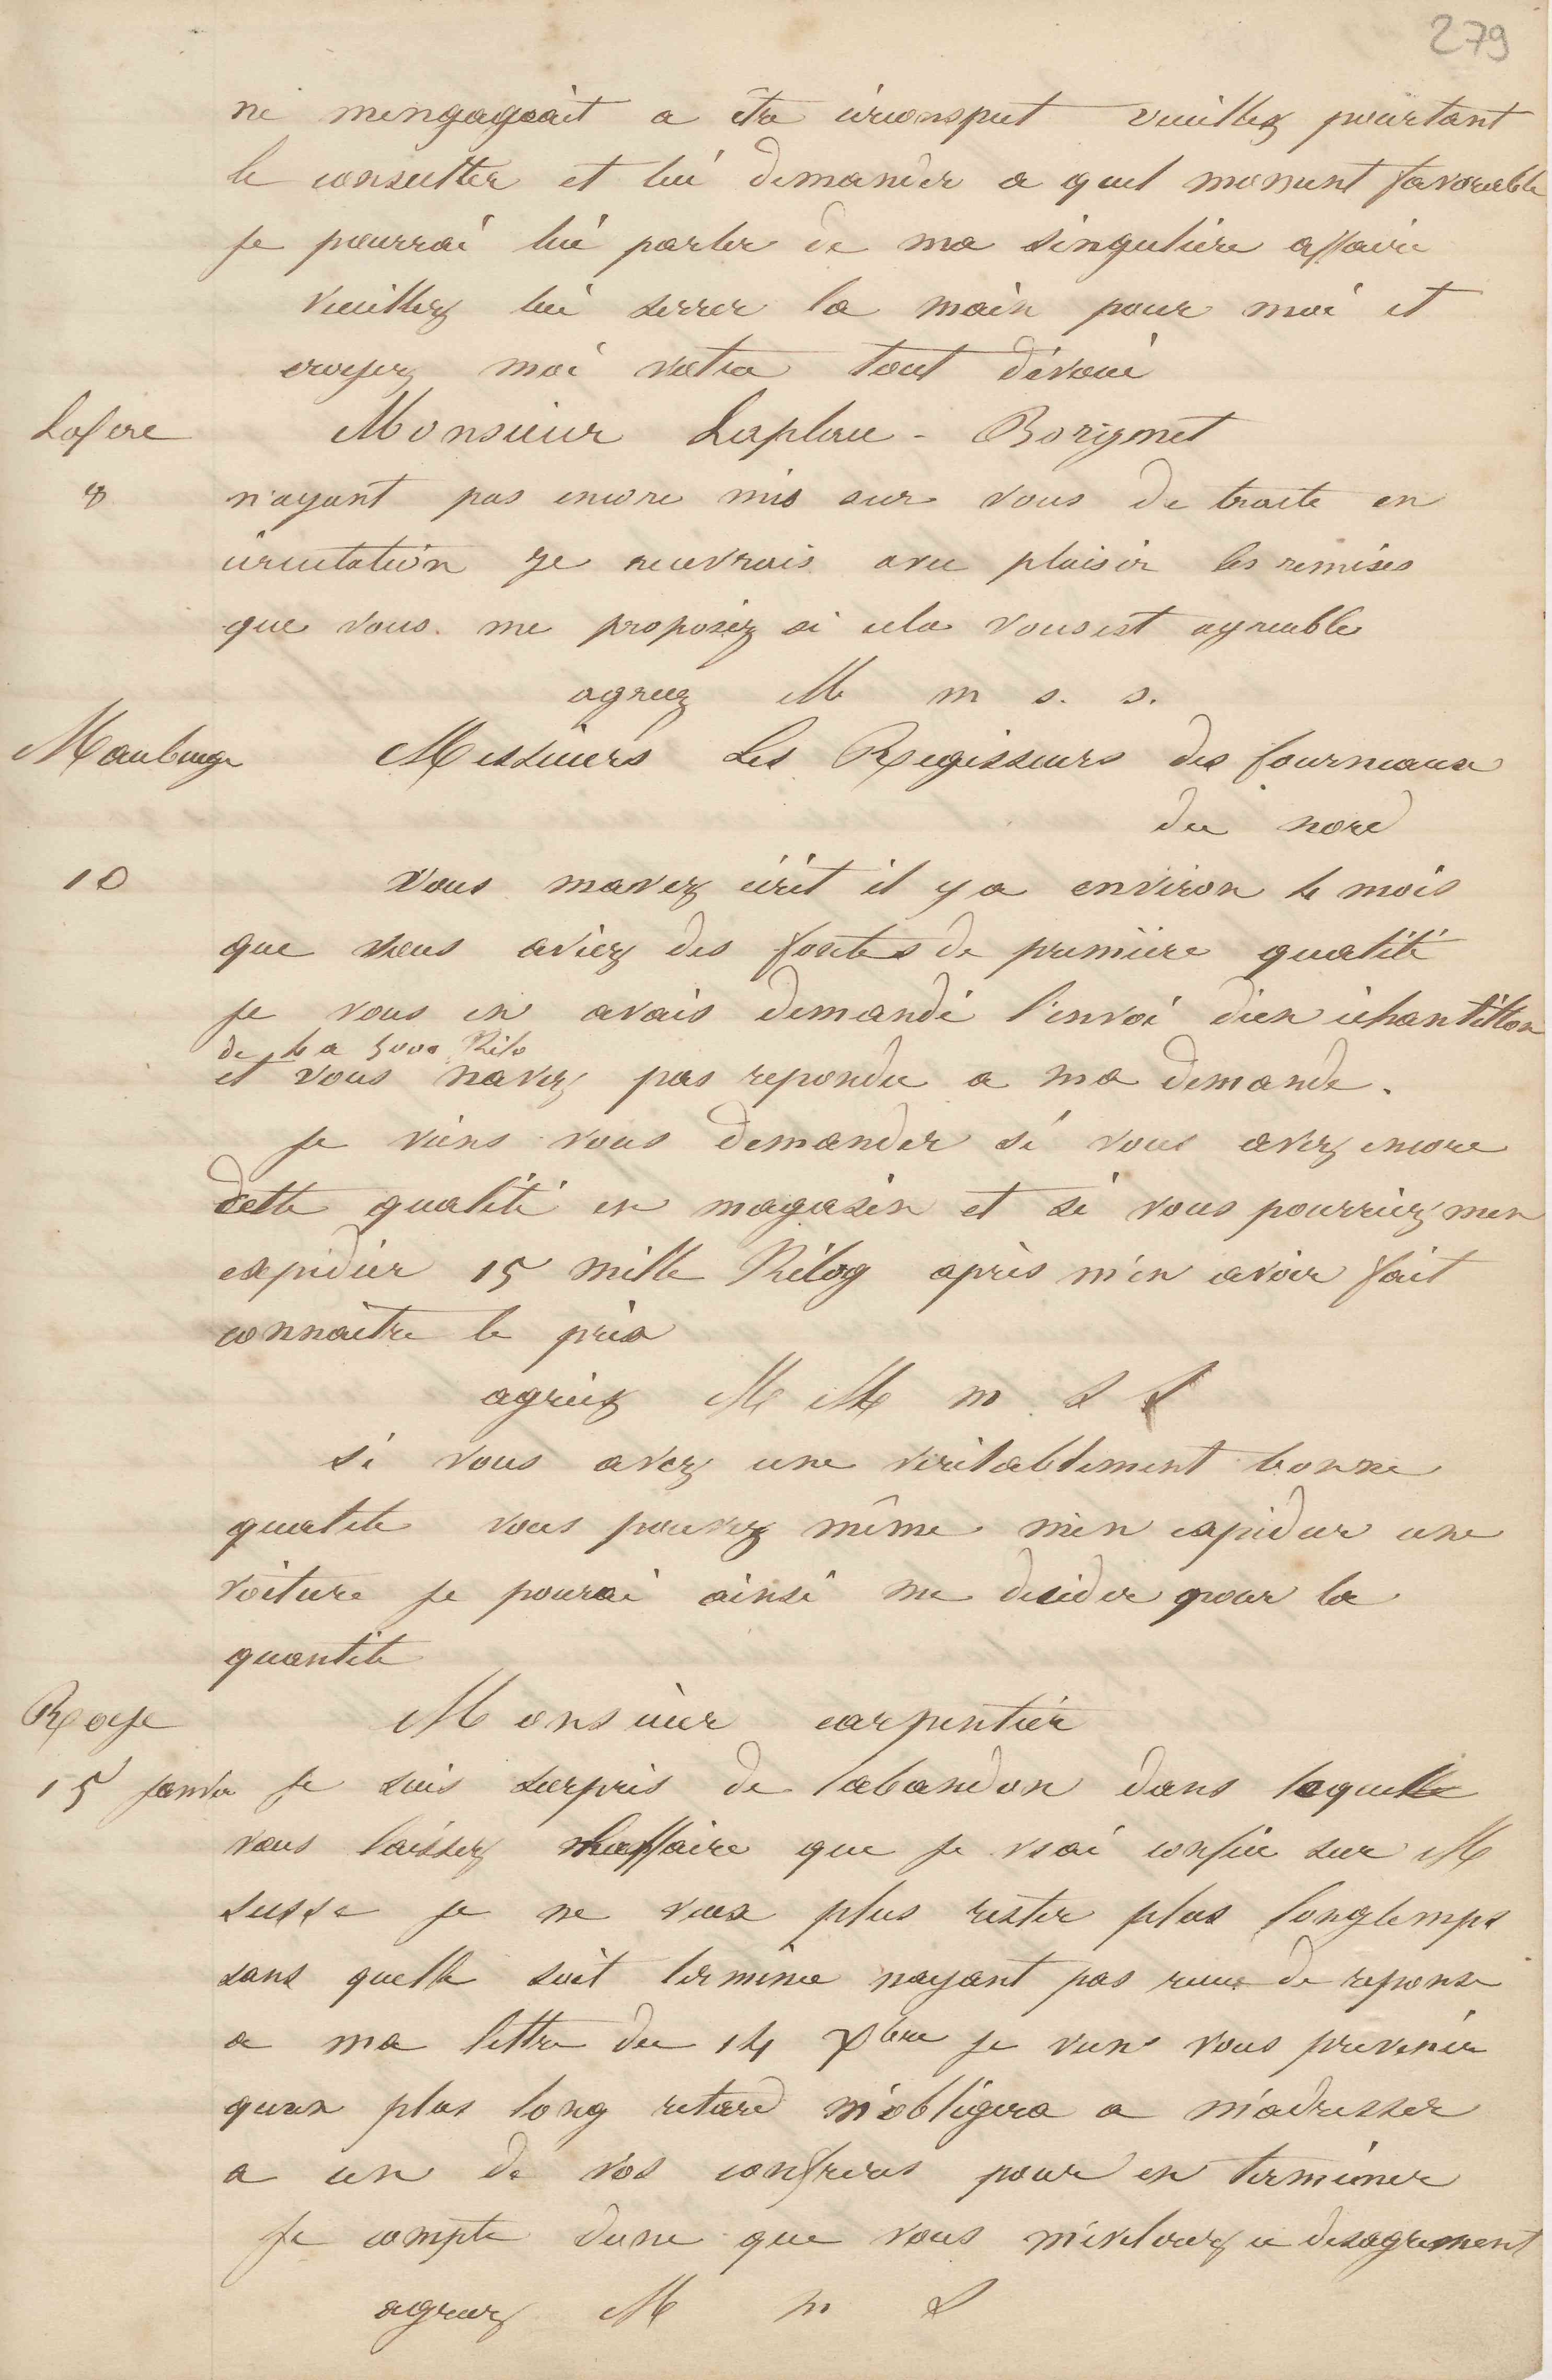 279
ne mengageait a être circonspect veuillez pourtant
le consulter et lui demander a quel moment favorable
je pourrai lui parler de ma singulière affaire
veuillez lui serrer la main pour moi et
croyez moi votre tout dévoué
Lafere Monsieur Laplace - Borignet
8 n'ayant pas encore mis sur vous de traite en
circulation je recevrais avec plaisir les remises
que vous me proposez si cela vous est agreable
agreez M m s. s.
Maubeuge Messieurs Les Regisseurs des fourneaux
du nord
10 Vous mavez écrit il y a environ 4 mois
que vous aviez des fontes de première qualité
je vous en avais demandé l'envoi d'un échantillon
de 4 a 5000 Kilo
et vous navez pas repondu a ma demande.
je viens vous demander si vous avez encore
cette qualité en magasin et si vous pourriez men
expédier 15 mille Kilog après m'en avoir fait
connaitre le prix
agréez M M m S S
si vous avez une veritablement bonne
qualite vous pouvez même m'en expedier une
voiture je pourai ainsi me decider pour la
quantite
Roye Monsieur carpentier
15 janvier je suis surpris de labandon dans laquelle
vous laissez laffaire que je vsai confié sur M
susse je ne veux plus rester plus longtemps
sans quelle soit terminée nayant pas recue de reponse
a ma lettre du 14 Xbre je viens vous prevenir
quun plus long retard m'obligera a m'adresser
a un de vos confreres pour en terminer
Je compte donc que vous m'eviterez ce desagrement
agreez M m S